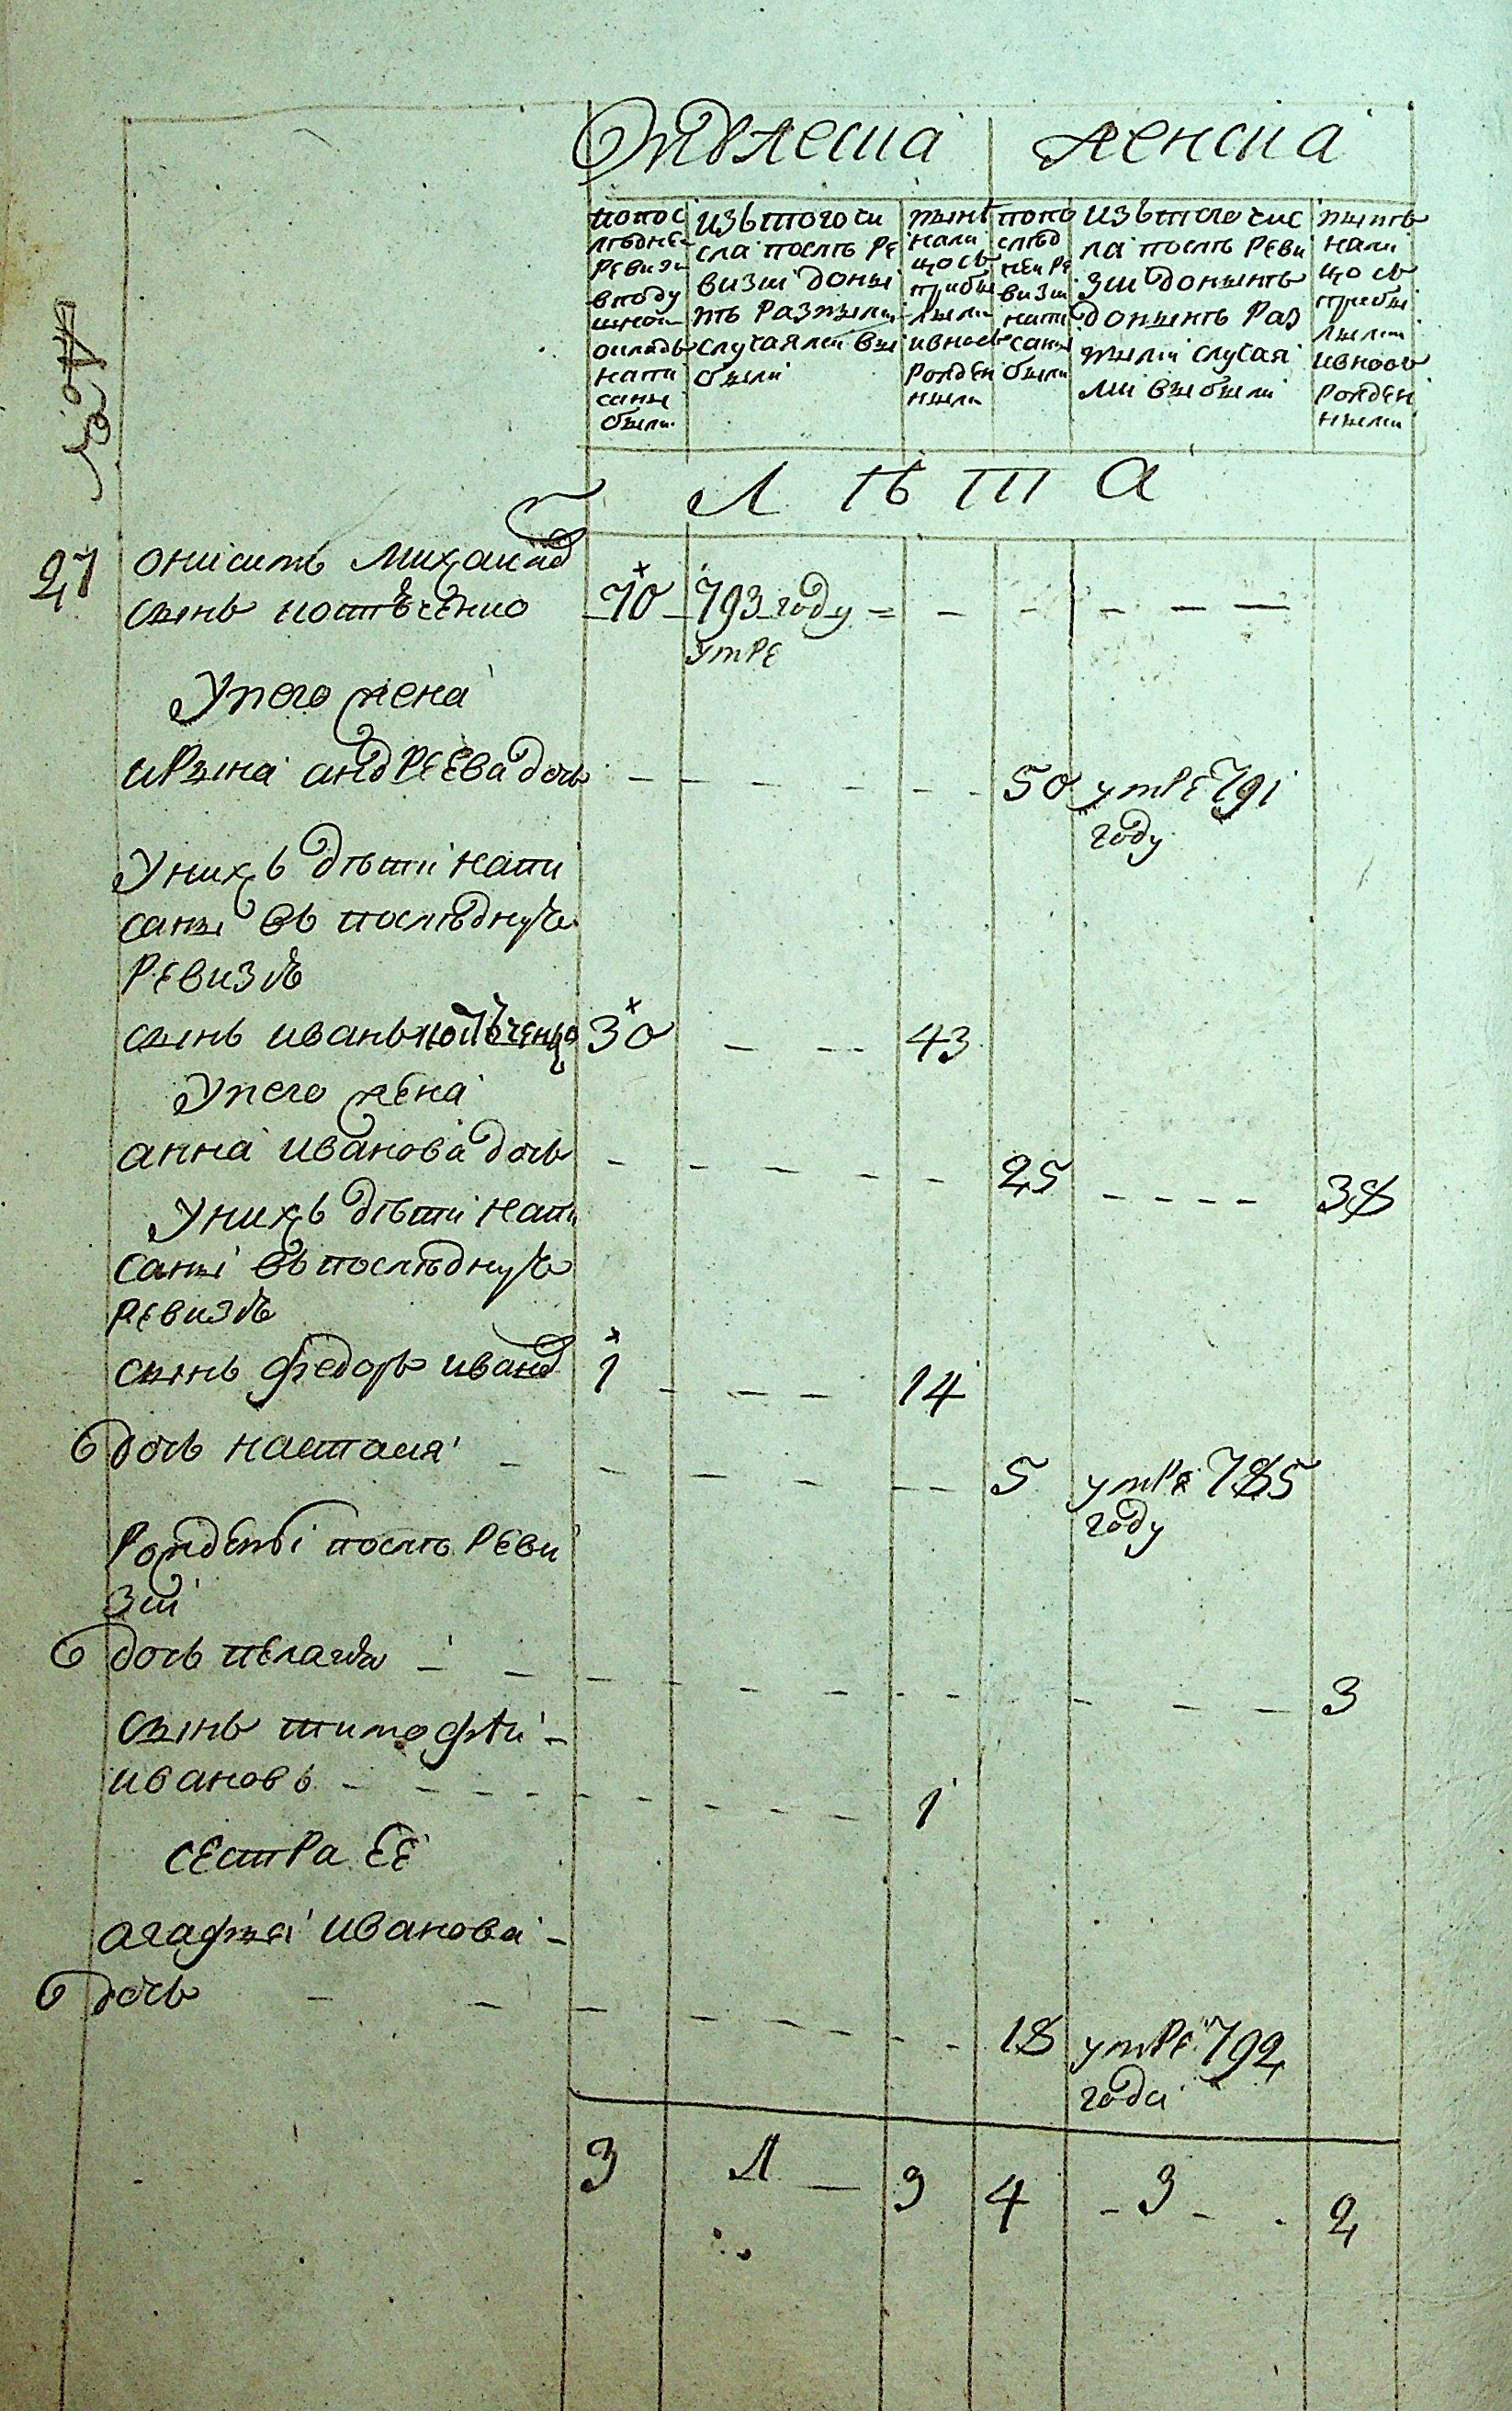 Мужеска женска
по пос
леднеи
ревизи
в поду
шнои
окладъ
напи
саны
были
изъ того чи
сла после ре
визии доны
не разными
случаями вы
были
ныне
нали
цо съ
прибы
лыми
и вновь
рожден
ными
по по
след
неи ре
визии
напи
саны
были
изъ того чис
ла после реви
зии доныне
доныне раз
ными случая
ми выбыли
ныне
нали
цо съ
прибы
лыми
и вновь
рожден
ными
Л ѣ т а
27 онисимъ михаилов
сынъ потѣченко 70 793 году
умре
У него жена
ирына андреева дочь 50 умре 791
году
У нихъ дѣти напи
саны въ последную
ревизию
сынъ иванъ потѣченко 30 43
У него жена
анна иванова дочь 25 38
У нихъ дѣти напи
саны въ последную
ревизию
сынъ федоръ иванов 1 14
дочь наталия 5 умре 785
году
Рождены после реви
зии
дочь пелагия 3
сынъ тимофѣи
ивановъ 1
сестра ее
агафыя иванова
дочь 18 умре 792
года
3 1 3 4 3 2